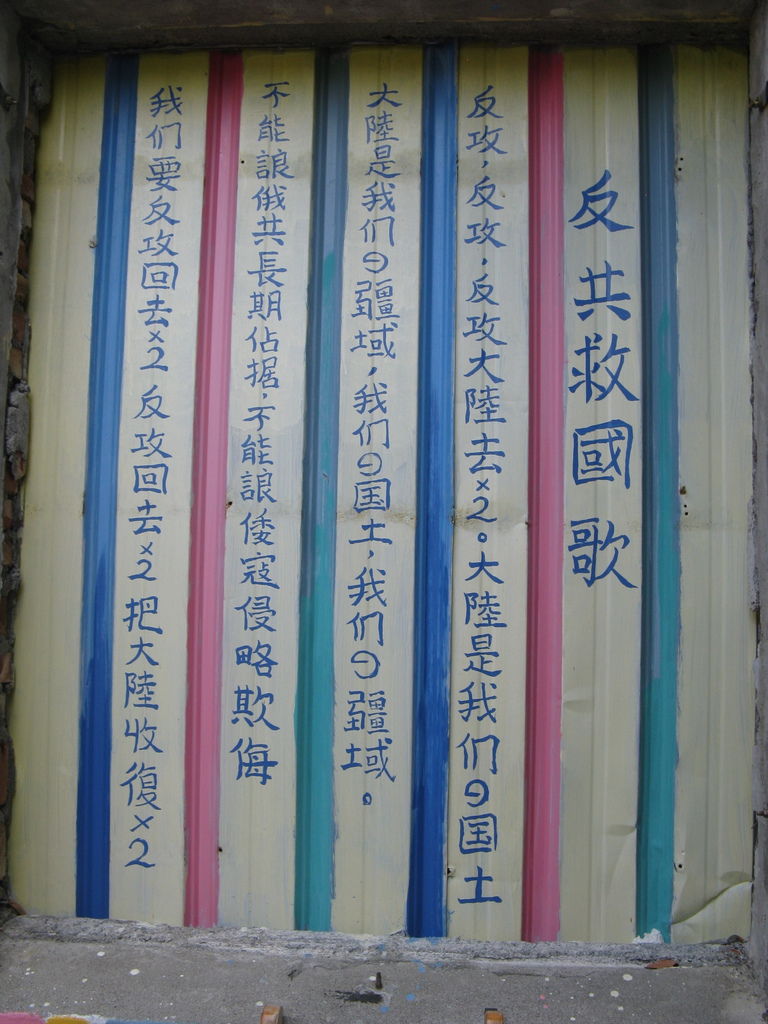 反共救國歌
反攻,反攻,反攻大陸去×2。大陸是我们の国土
大陸是我们の疆域,我们の国土,我们の疆域。
不能讓俄共長期佔据,不能讓倭寇侵略欺侮
我们要反攻回去×2 反攻回去×2 把大陸收復×2